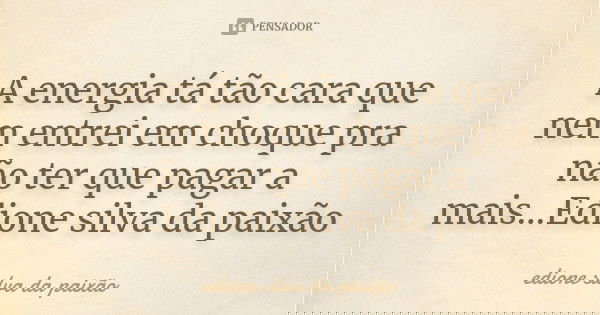 PENSADOR
A energia tá tão cara que
nem entrei em choque pra
não ter que pagar a
mais....Edione silva da paixão
edione silva da paixão